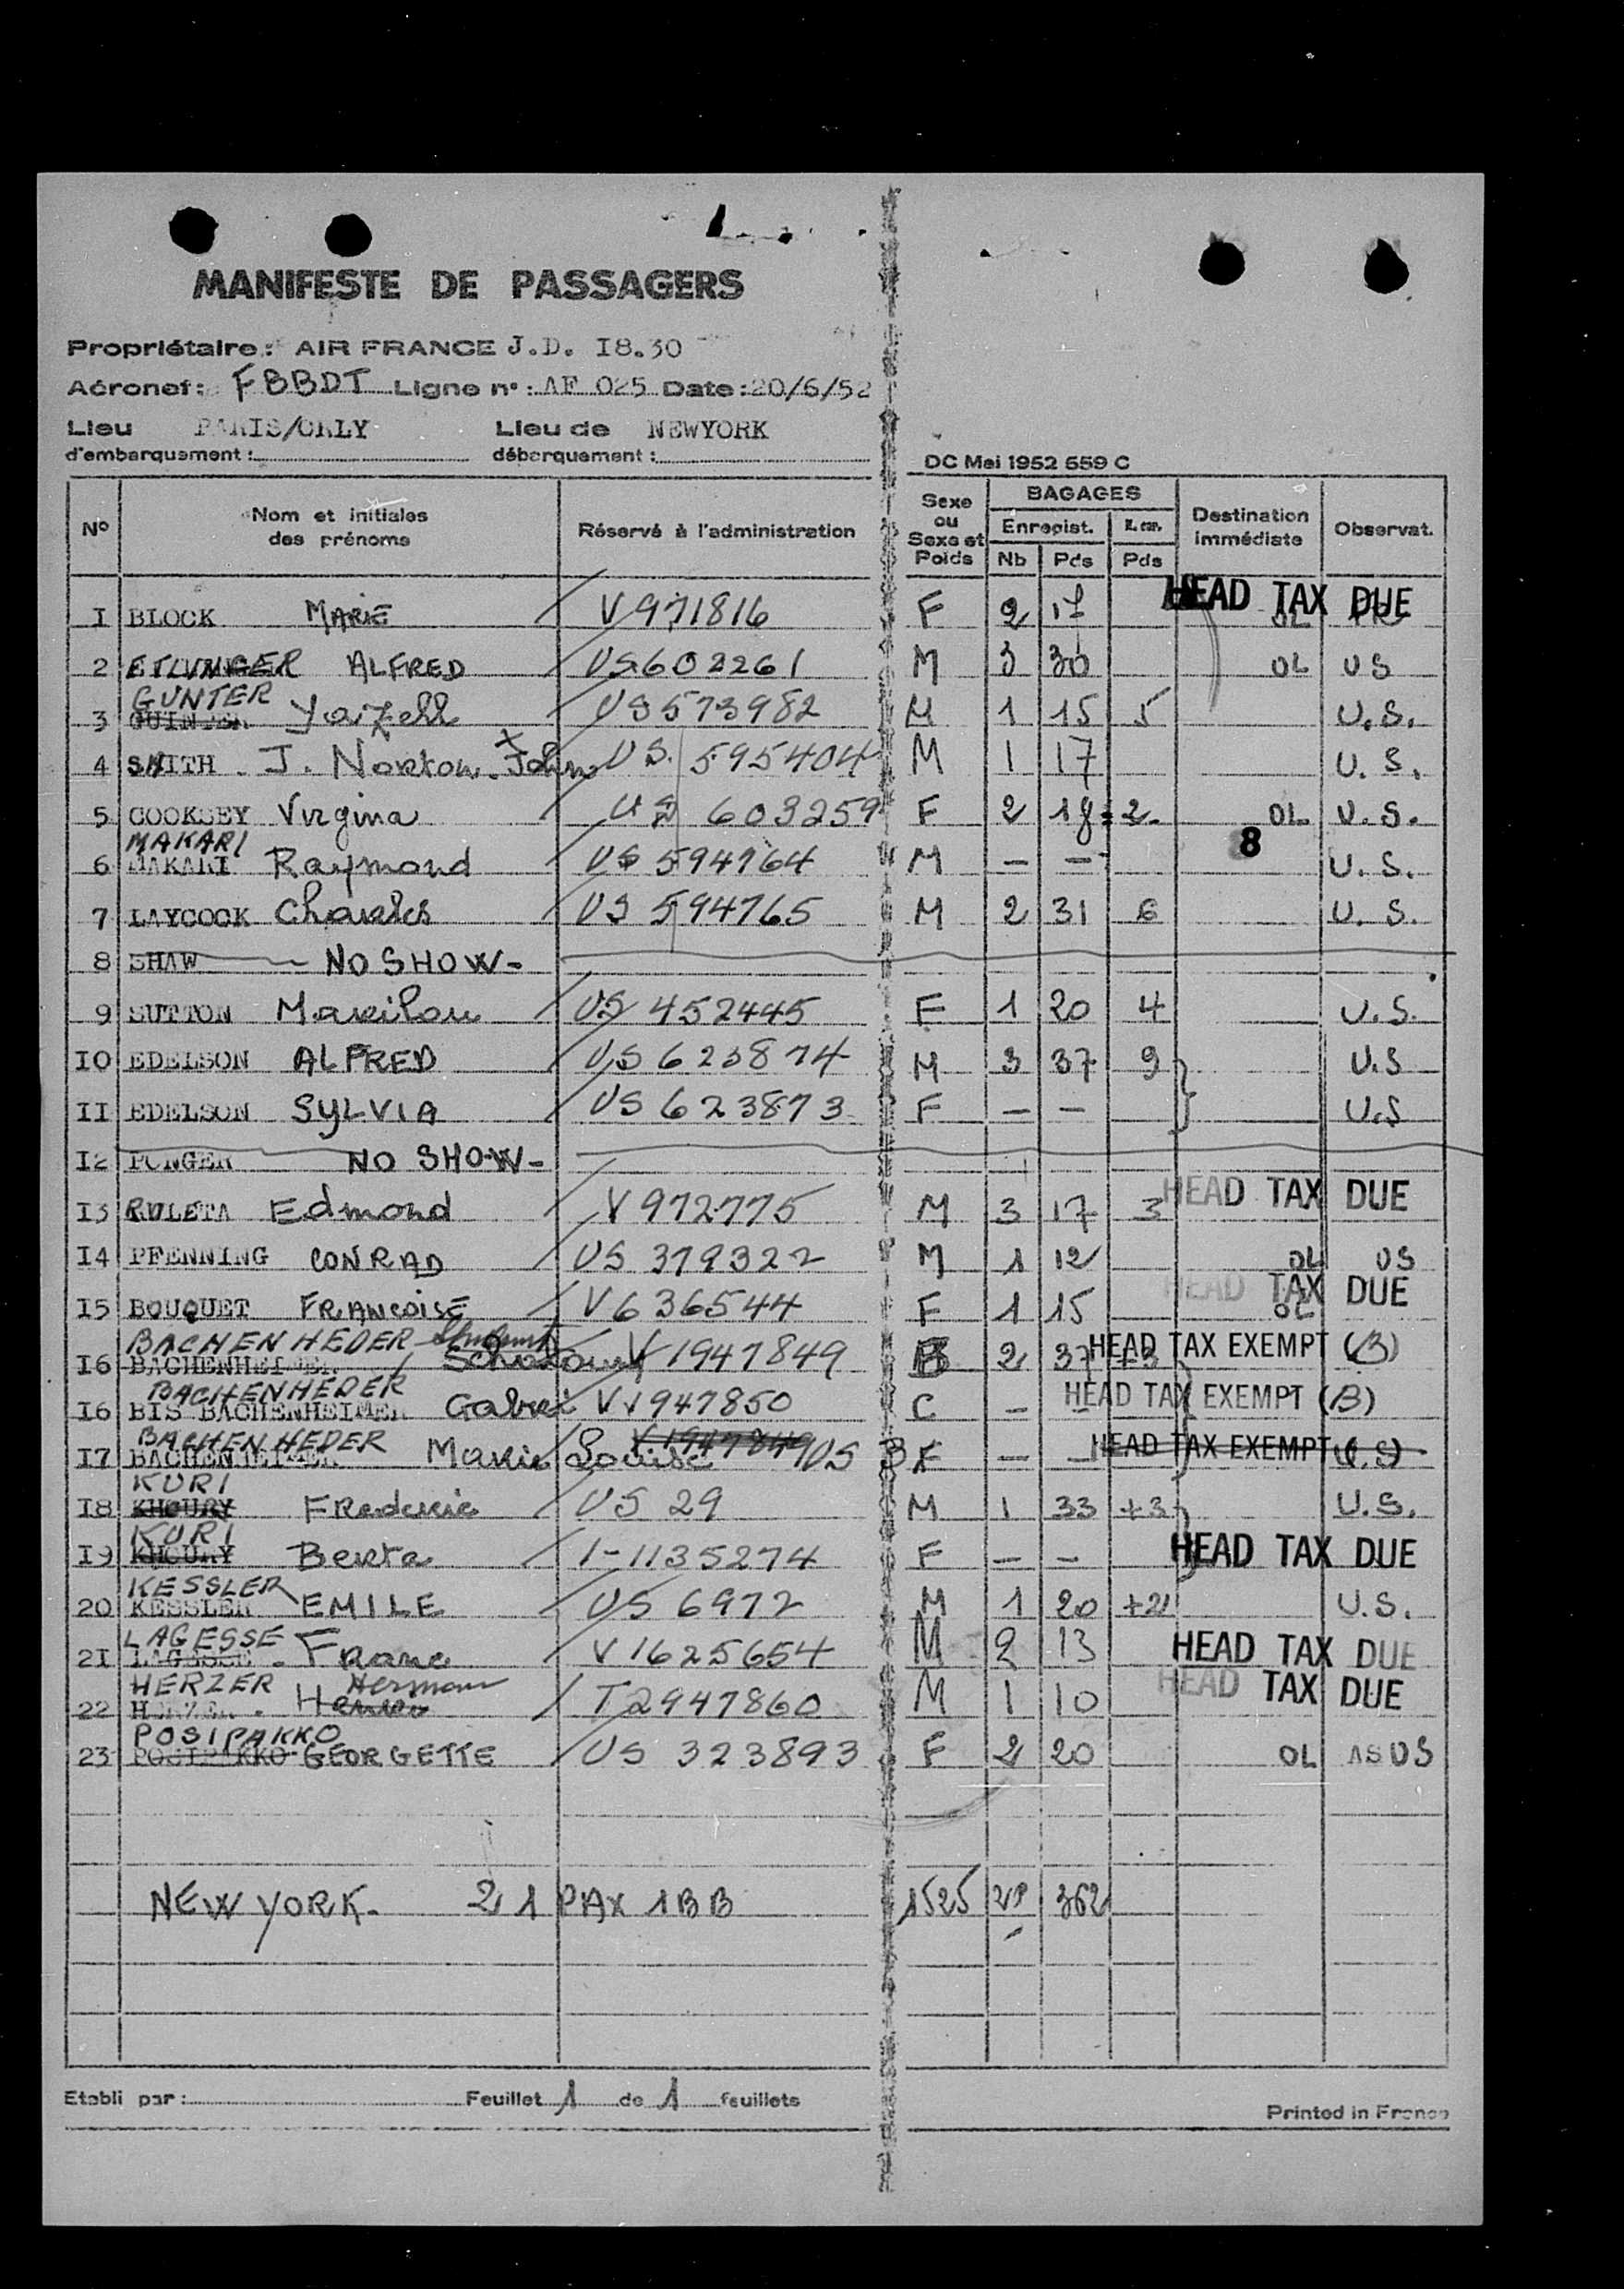 MANIFESTE DE PASSAGERS
Propriétaire : AIR FRANCE J.D. I8.30
Aéronef : FBBDT Ligne n° : AF 025 Date : 20/6/52
Lieu d'embarquement : PARIS/ORLY Lieu de débarquement : NEWYORK
DC Mai 1952 559 C
N° Nom et initiales des prénoms Réservé à l'administration Sexe ou Sexe et Poids BAGAGES Enregist. Nb Pds Pds Destination immédiate Observat.
I BLOCK MARIE V971816 F 2 17 HEAD TAX DUE
2 ALFRED US602261 M 3 30 OL US
GUNTER
3 US573982 M 1 15 5 U.S.
4 SMITH J. Norton John US. 595404 M 1 17 U. S.
5 COOKSEY Virgina US 603259 F 2 18 2 OL U. S.
MAKARI 8
6 MAKARI Raymond US 594764 M — — U. S.
7 LAYCOCK Charles US 594765 M 2 31 6 U. S.
8 SHAW NO SHOW-
9 SUTTON Marilou US 452445 F 1 20 4 U.S.
I0 EDELSON ALFRED US 623874 M 3 37 9 U.S
II EDELSON SYLVIA US 623873 F — — U.S
I2 NO SHOW-
I3 RULETA Edmond V972775 M 3 17 3 HEAD TAX DUE
I4 PFENNING CONRAD US 379322 M 1 12 OL US
I5 BOUQUET FRANCOISE V636544 F 1 15 OL HEAD TAX DUE
BACHENHEDER
I6 BACHENHEIMER V 1947849 2 37 HEAD TAX EXEMPT (B)
BACHENHEDER
I6 BIS BACHENHEIMER V 1947850 C — HEAD TAX EXEMPT (B)
BACHENHEDER V1947849
I7 BACHENHEIMER Marie Louise US F — — HEAD TAX EXEMPT
KURI
I8 KHOURY Frederic US 29 M 1 33 +3 U.S.
KURI
I9 KHOURY Berta I-1135274 F — — HEAD TAX DUE
KESSLER
20 KESSLER EMILE US 6972 M 1 20 +2 U.S.
LAGESSE
21 Franc V 1625654 M 2 13 HEAD TAX DUE
HERZER Hermann
22 T2947860 M 1 10 HEAD TAX DUE
POSIPAKKO
23 POSIPAKKO GEORGETTE US 323893 F 2 20 OL US
NEW YORK. 21 PAX 1BB 1525 362
Etabli par : Feuillet 1 de 1 feuillets
Printed in France